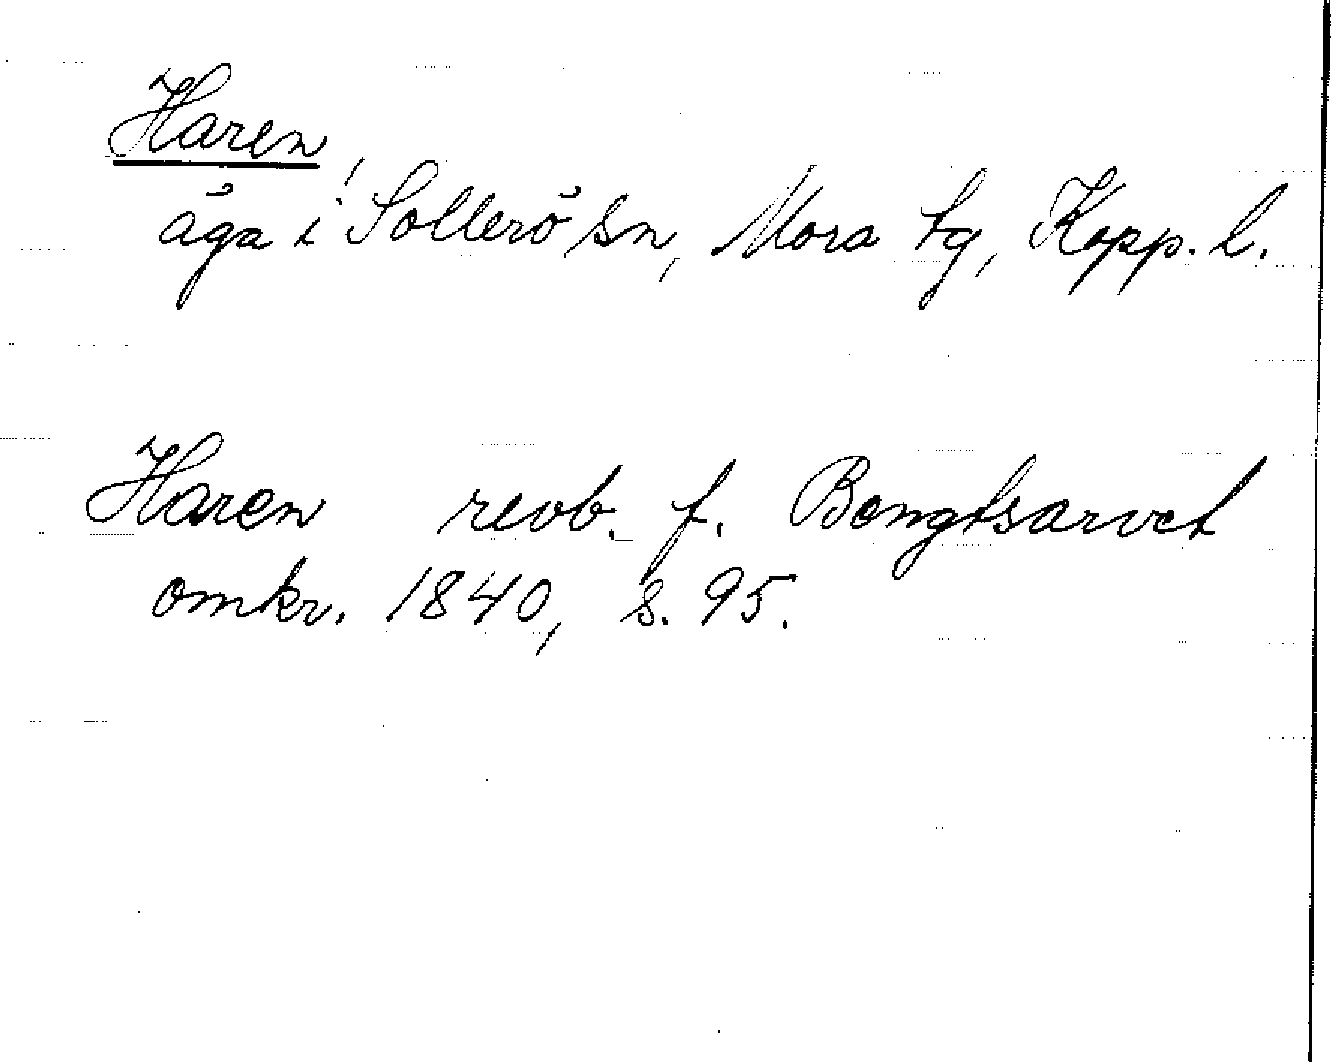 Haren
äga i Sollerö sn, Mora tg, Kopp. l.
Haren revb. f. Bengtsarvet
omkr. 1840, s. 95.